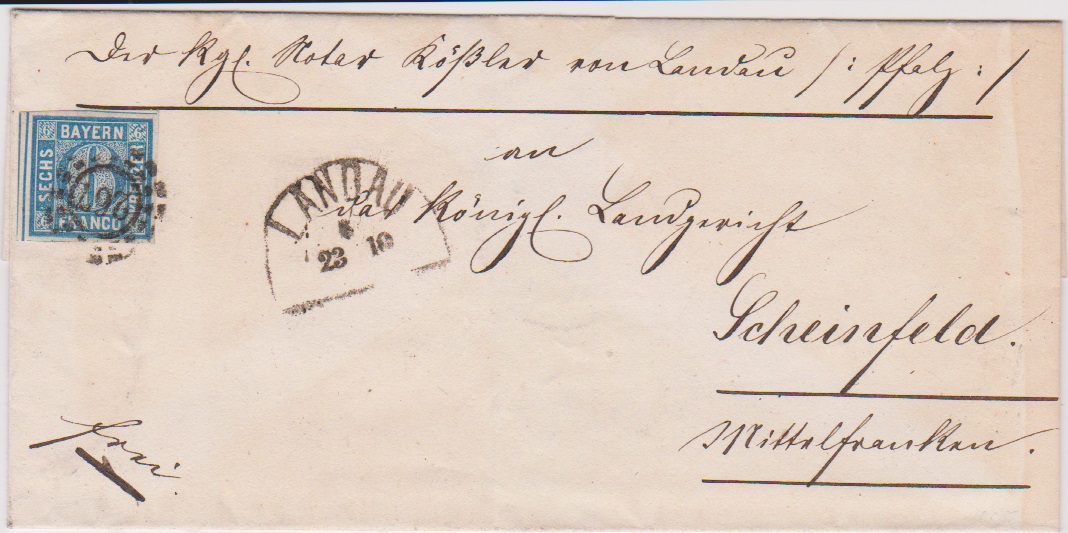 Der Kgl. Notar Kößler von Landau /: Pfalz :/
BAYERN
SECHS
6
FRANCO
LANDAU
23 10
an
das Königl. Landgericht
Scheinfeld.
Mittelfranken.
frei.